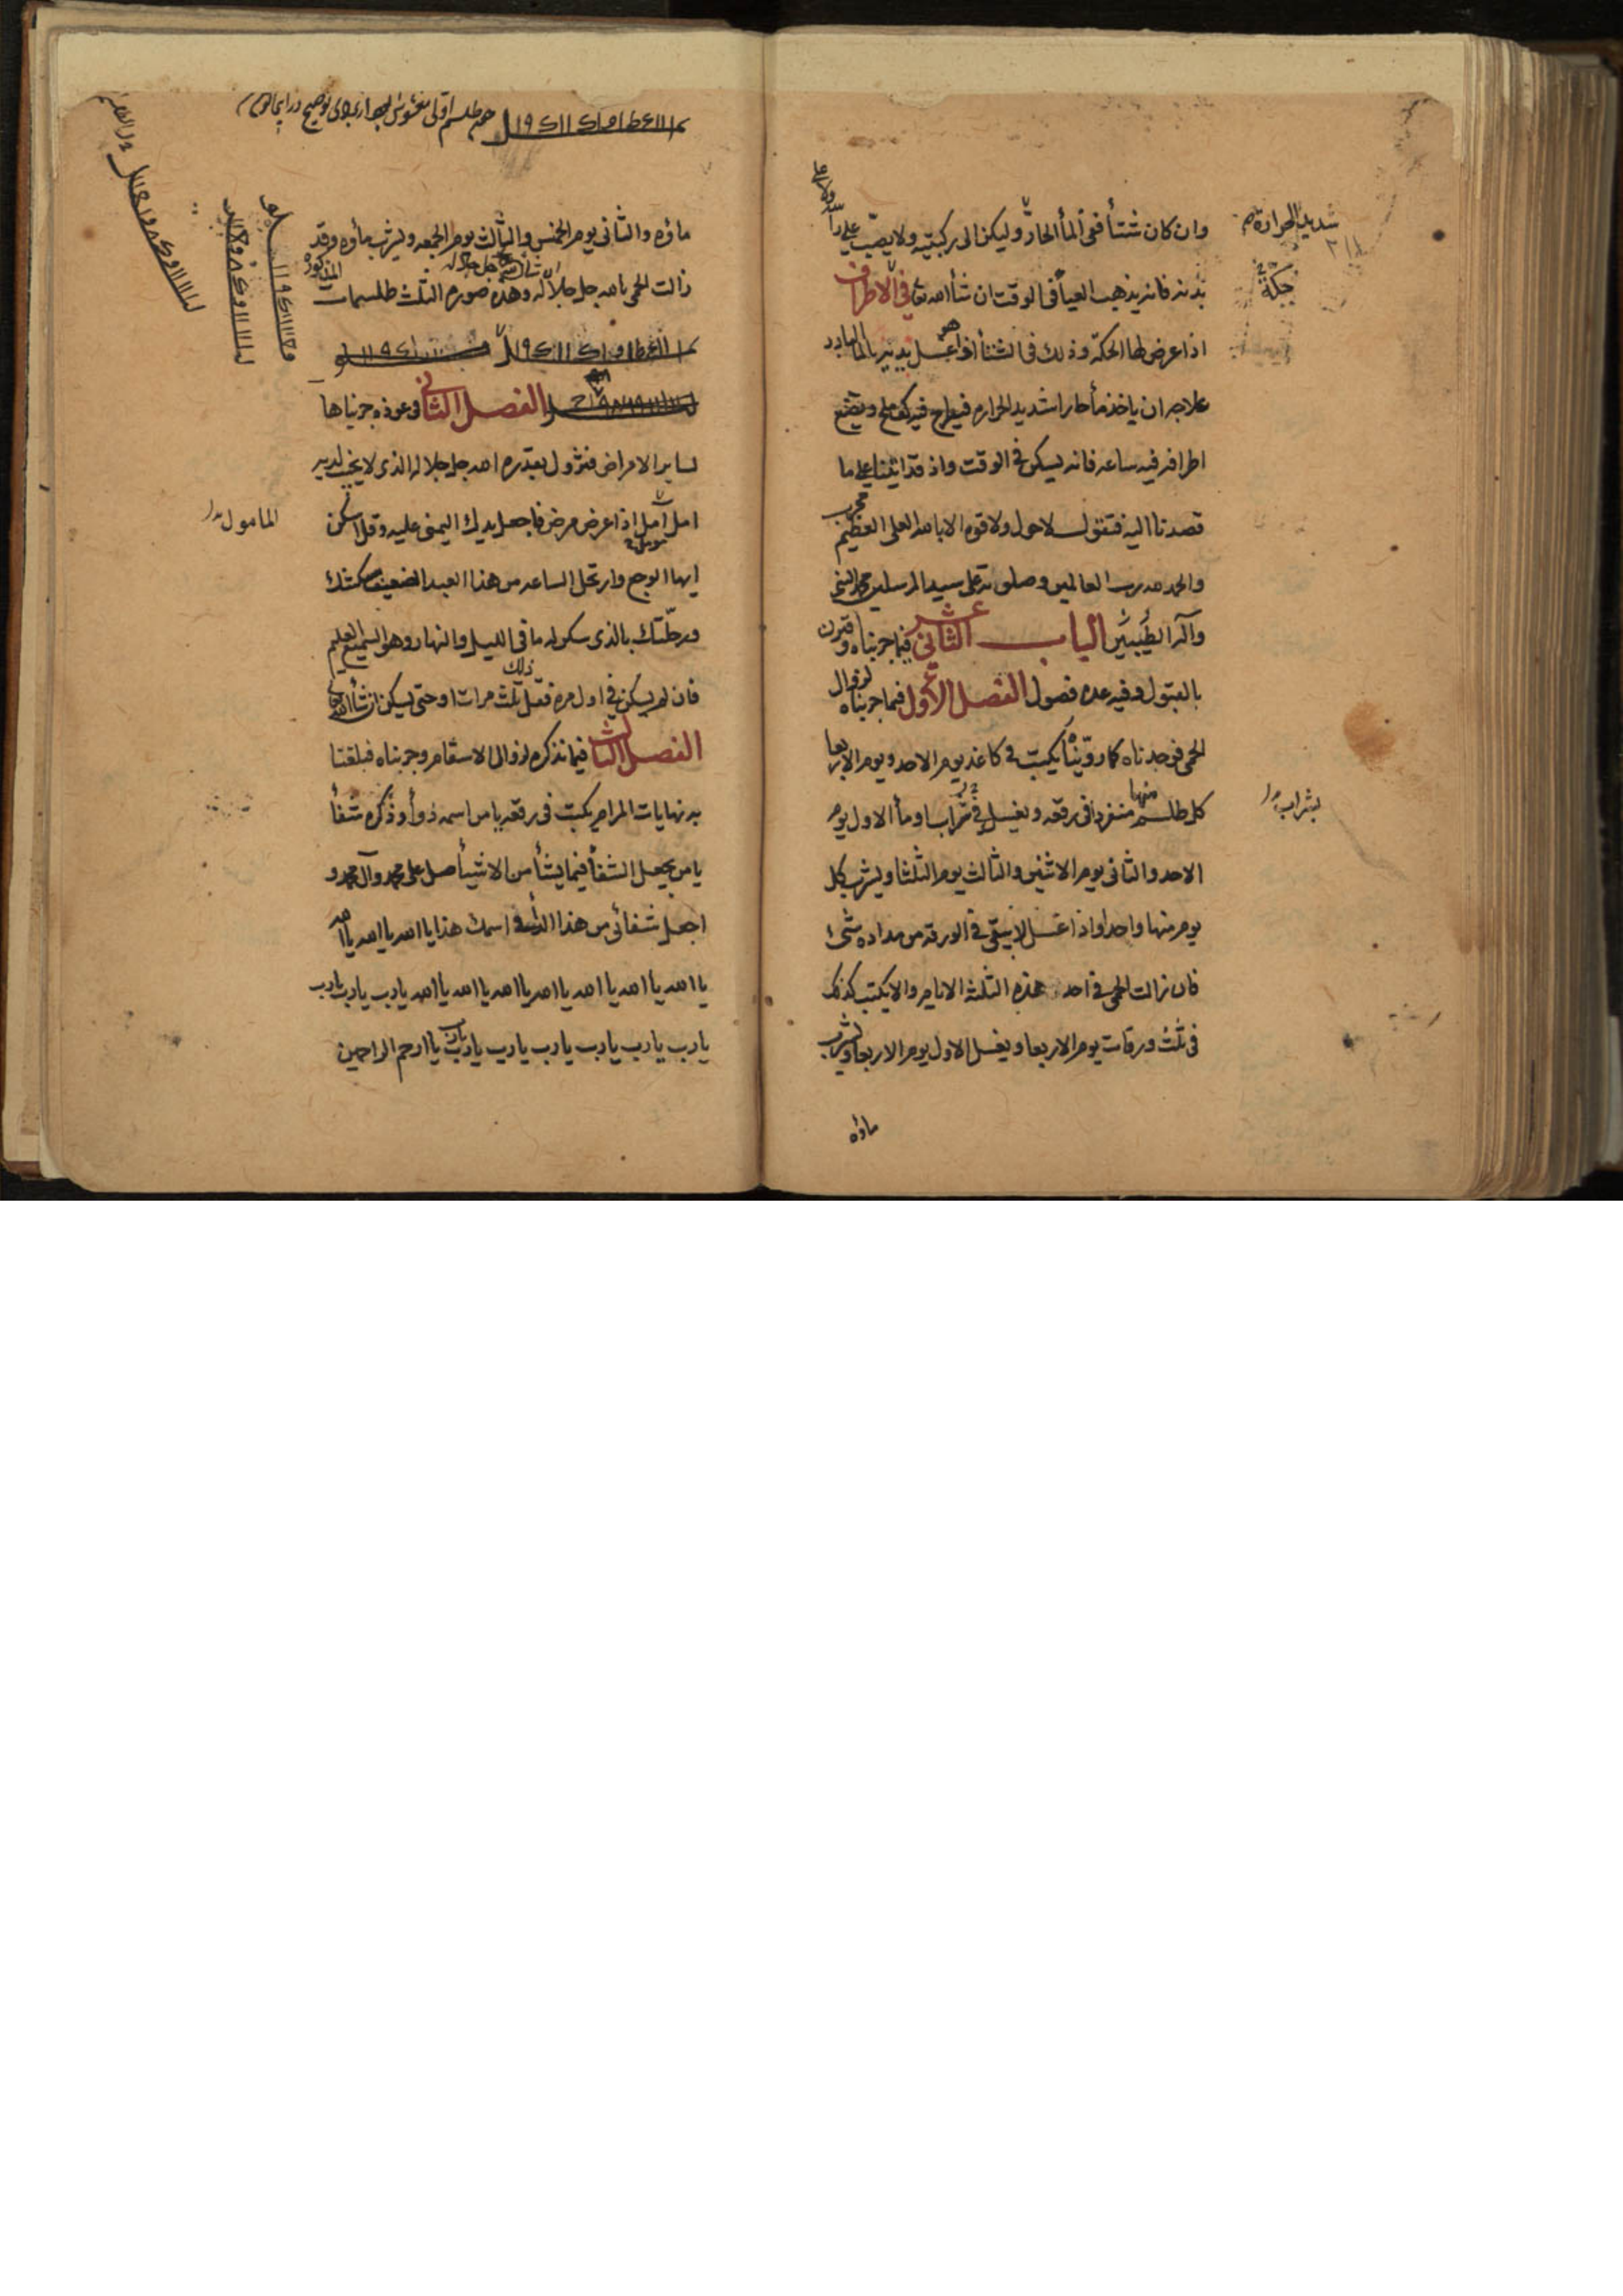 وان كان شتأ ففى المأ الحارّ وليكن الى ركبتيه ولا يصبّ على
بدنه فانه يذهب العيأ فى الوقت ان شأ الله تع فى الاطراف
اذا عرض لها الحكة وذلك فى الشتأ اذا هو غسل يديه بالمأ البارد
علاجه ان ياخذ مأ حارا شديد الحراره فيطرح فيه كف ملح ويضع
اطرافه فيه ساعه فانه يسكن فى الوقت واذ قد اتينا على ما
قصدنا اليه فنقول لا حول ولا قوه الا بالله العلى العظيم
والحمد لله رب العالمين وصلوته على سيد المرسلين محمد النبى
وآله الطيبين الباب الثانى عشر فيما جربناه وقرن
بالقبول وفيه عده فصول الفصل الاول فيما جربناه لزوال
الحمى فوجدناه كما روّيناه يكتب فى كاغذ يوم الاحد ويوم الاربعا
كل طلسم منها منفردا فى رقعه ويغسل فى شراب او مأ الاول يوم
الاحد والثانى يوم الاثنين والثالث يوم الثلثا ويشرب كل
يوم منها واحدا واذا غسل لا يبقى فى الورقه من مداده شئ
فان زالت الحمى فى احد هذه الثلثه الايام والا يكتب كذلك
فى ثلث ورقات يوم الاربعا ويغسل الاول يوم الاربعا ويشرب
ماؤه
شديد الحرارة
حكّة
بشراب
ماؤه والثانى يوم الخميس والثالث يوم الجمعه ويشرب ماؤه وقد
زالت الحمى بالله جل جلاله وهذه صوره الثلث طلسمات
المذكورة
الفصل الثانى فى عوذه جربناها
لساير الامراض فتزول بقدره الله جل جلاله الذى لا يخيب لديه
امل آمل اذا عرض مرض فاجعل يدك اليمنى عليه وقل اسكن
ايها الوجع وارتحل الساعه من هذا العبد الضعيف سكنتك
ورحلتك بالذى سكن له ما فى الليل والنهار وهو السميع العليم
فان لم يسكن فى اول مره فقل ذلك ثلث مرات او حتى يسكن ان شأ الله تعا
الفصل الثالث فيما نذكره لزوال الاسقام وجربناه فبلغنا
به نهايات المرام يكتب فى رقعه يا من اسمه دوأ وذكره شفأ
يا من يجعل الشفأ فيما يشأ من الاشيأ صل على محمد وآل محمد و
اجعل شفائى من هذا الدأ فى اسمك هذا يا الله يا الله يا الله
يا الله يا الله يا الله يا الله يا الله يا الله يا الله يارب يارب يارب
يارب يارب يارب يارب يارب يارب يارب يا ارحم الراحمين
المامول